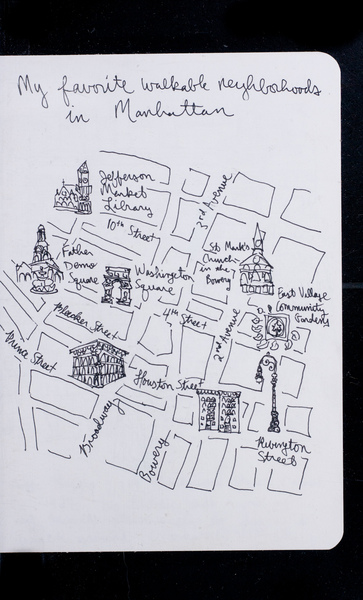 My favorite walkable neighborhoods
in Manhattan
Jefferson
Market
Library
3rd Avenue
10th Street
St Mark's
Church
in the
Bowery
Father
Demo
Square
Washington
Square
East Village
Community
Gardens
Bleecker Street
4th Street
2nd Avenue
Prince Street
Houston Street
Broadway
Bowery
Rivington
Street